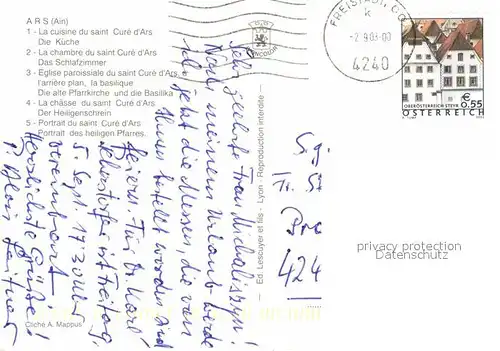 ARS (Ain)
1 - La cuisine du saint Curé d'Ars
Die Küche
2 - La chambre du saint Curé d'Ars
Das Schlafzimmer
3 - Eglise paroissiale du saint Curé d'Ars, à
l'arrière plan, la basilique
Die alte Pfarrkirche und die Basilika
4 - La châsse du saint Curé d'Ars
Der Heiligenschrein
5 - Portrait du saint Curé d'Ars
Portrait des heiligen Pfarres.
Sehr geehrte Frau
Nach meinem Urlaub werde
ich jetzt die Messen, die von
Ihnen bestellt worden sind
feiern. Für Dr. Karl
ist Freitag,
5. Sept. 17.30 Uhr
vereinbart.
Herzlichste Grüße!
P.
Cliché A. Mappus
Ed. Lescuyer et fils - Lyon - Reproduction interdite
FREISTADT, OÖ
k
-2.9.03-00
4240
€ 0,55
OBERÖSTERREICH STEYR
ÖSTERREICH
Sg.
Fr.
424
privacy protection
Datenschutz